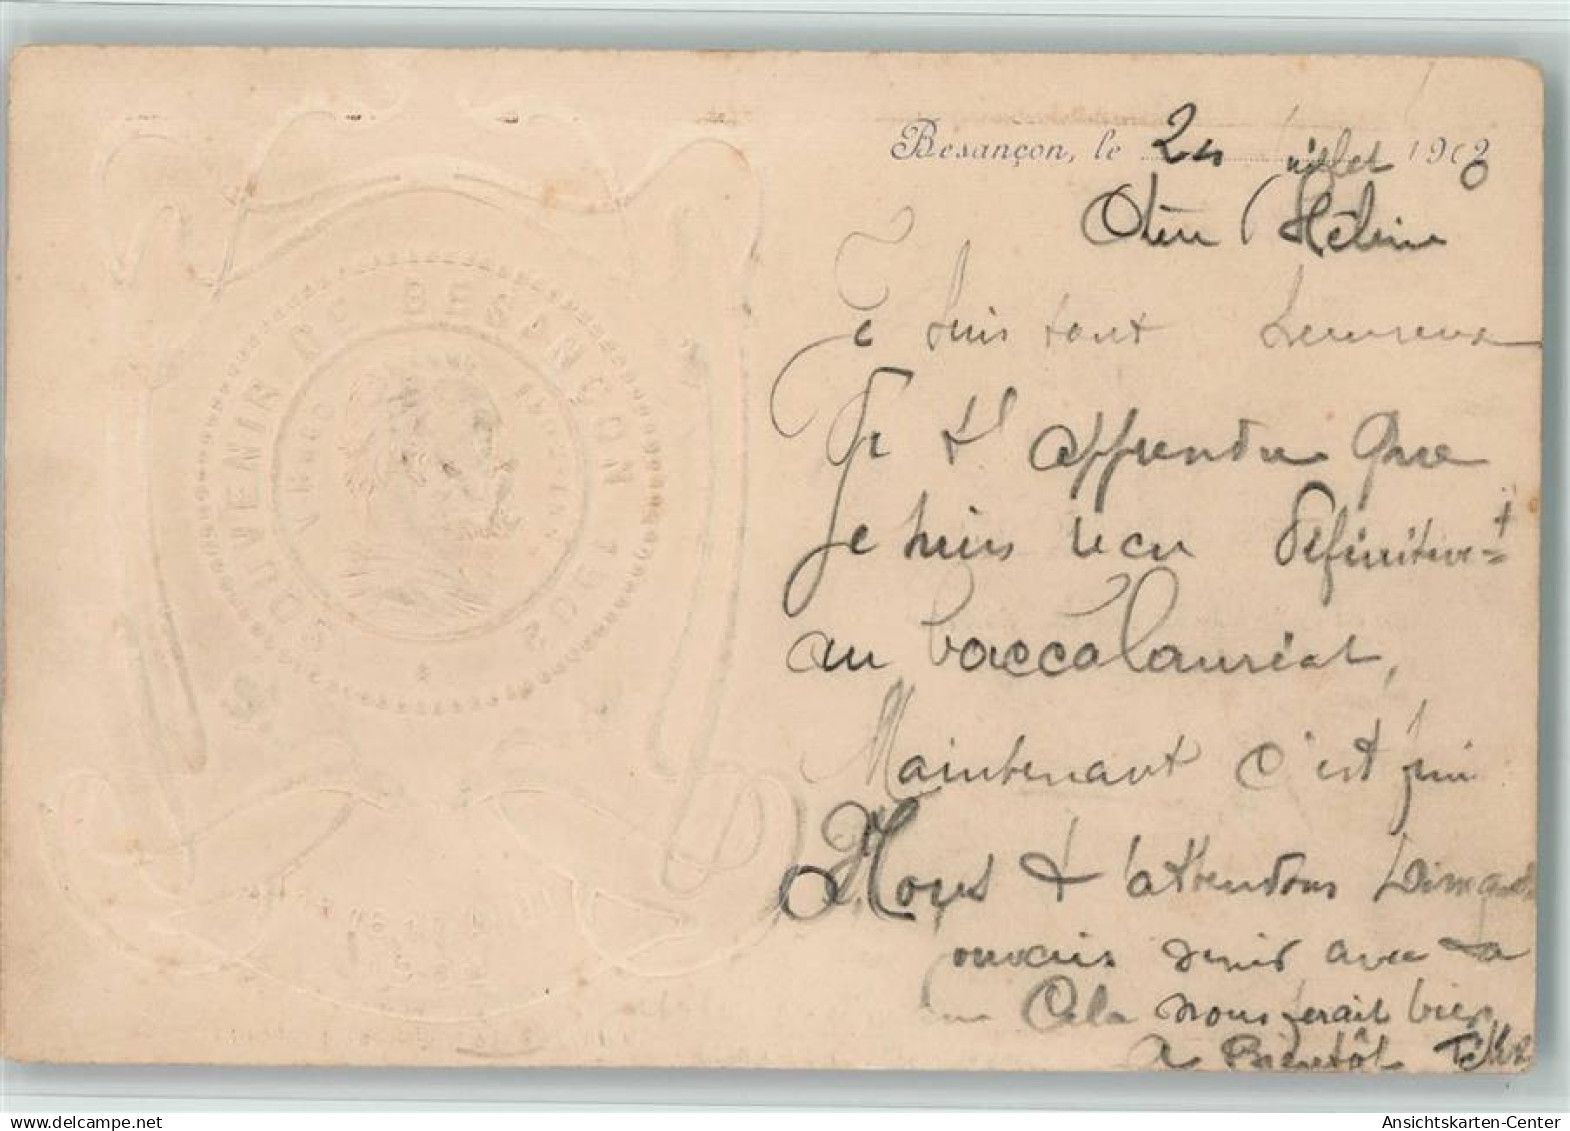 SOUVENIR DE BESANÇON 1902
V. HUGO
Besançon, le 24 juillet 1902
Chère Hélène
Je suis tout heureux
de t'apprendre que
je suis reçu définitive-t
au baccalauréat,
Maintenant c'est fini
Nous t'attendons
venir avec ta
Cela nous ferait bien
A Bientôt
Ansichtskarten-Center